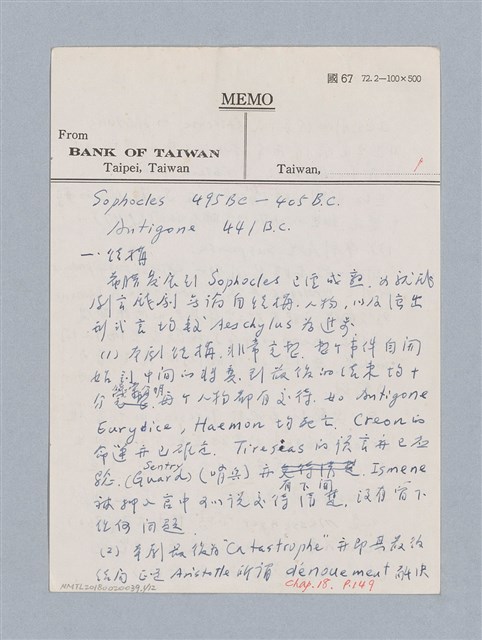 國 67 72.2—100×500
MEMO
From
BANK OF TAIWAN
Taipei, Taiwan
Taiwan,
1
Sophocles 495 BC — 405 B.C.
Antigone 441 B.C.
一. 結構
希臘發展到 Sophocles 已經成熟. 以戲
劇言 戲劇 無論自結構, 人物, 以及演出
形式言均較 Aeschylus 為進步
(1) 本劇結構, 非常完整. 整个事件自開
始到中間的轉變, 到最後的結束均十
分 每个人物都有交待. 如 Antigone
Eurydice, Haemon 均死亡. Creon的
命運亦已確定. Tiresias 的預言亦已應
驗. (Guard) Sentry (哨兵) 亦 有下間 Ismene
被押入宮中可以說交待清楚, 沒有留下
任何問題.
(2) 本劇最後的 "Catastrophe" 亦即其最後
結局正是 Aristotle 所謂 dénouement 解決
Chap. 18. P.149
NMTL20180020039, 1/12